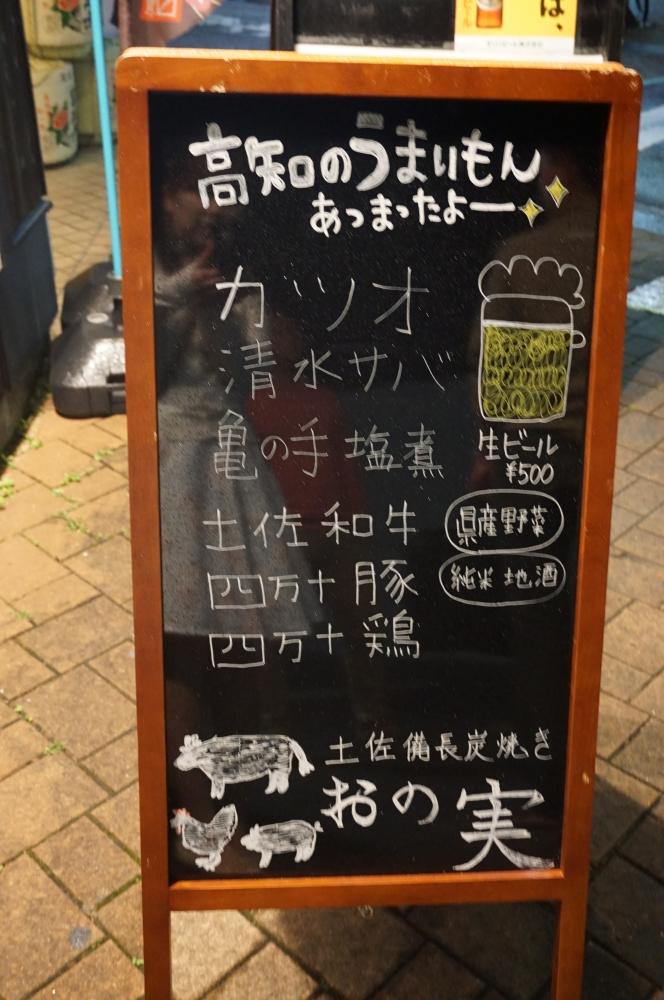 は、
高知のうまいもん
あつまったよー
カツオ
清水サバ
亀の手塩煮
生ビール
¥500
土佐和牛
県産野菜
四万十豚
純米 地酒
四万十鶏
土佐備長炭焼き
おの実